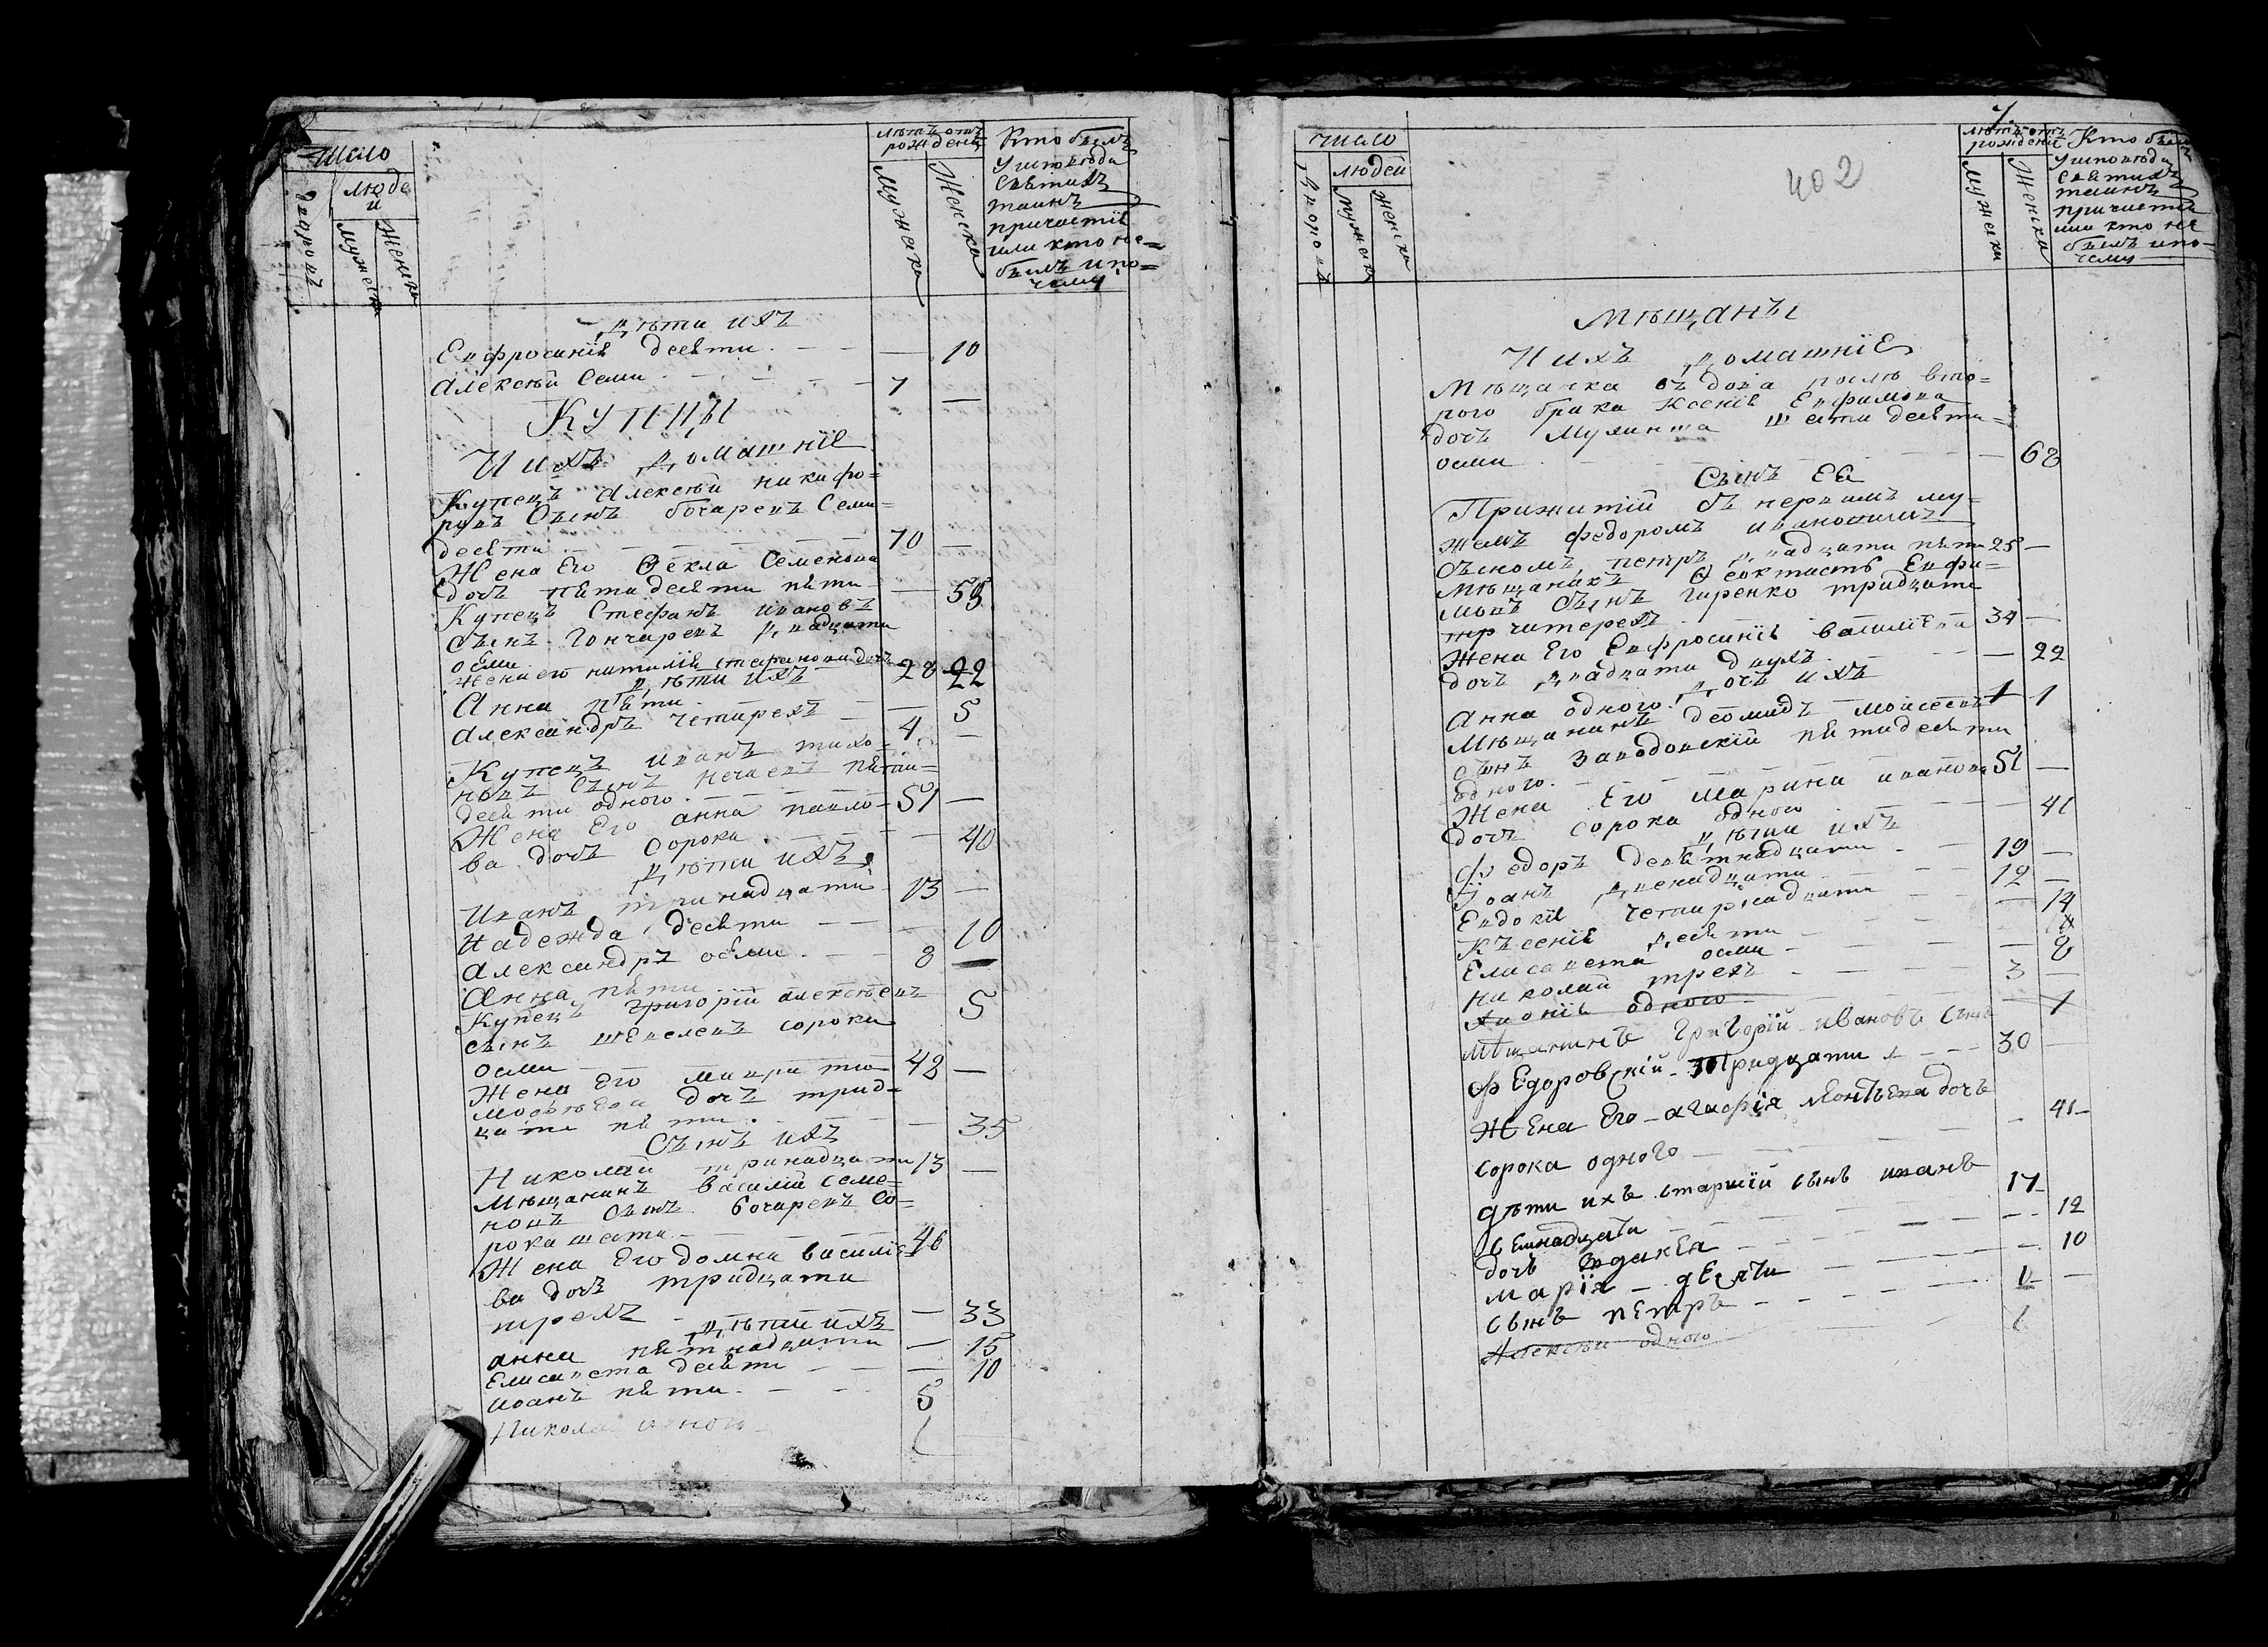 Число
Дворовъ
люде
и
Мужеска
Женска
лѣтъ отъ
рожденiя
Мужеска
Женска
Кто былъ
У исповѣди
Святыхъ
таинъ
причастiя
или кто не=
былъ и по=
чему
Дѣти ихъ
Евфросинiя десяти — — — 10
Алексѣй семи — — — 7 —
Купцы
И ихъ Домашнiе
Купецъ Алексѣй Никифо=
ровъ Сынъ Бочаревъ Семи=
десяти — — — 70 —
Жена Его Ѳекла Семенова
дочь пятидесяти пяти — 55
Купецъ Стефанъ Ивановъ
Сынъ Гончаревъ Двадцати
осми 28
Жена его наталiя стефанова дочь 22
Дѣти ихъ
Анна пяти — — 5
Александръ Четырехъ — 4 —
Купецъ Иванъ тихо=
новъ Сынъ Нечаевъ пяти=
десяти одного — — 51 —
Жена Его анна павло=
ва дочь Сорока — — 40
Дѣти ихъ
Иванъ тринадцати 13 —
Надежда десяти — — 10
Александръ осми — — 8 —
Анна пяти 5
Купецъ Григорiй алексѣевъ
сынъ Шевелевъ сорока
осми — — — 48 —
Жена Его мавра тимо=
дочь трид=
цати пяти — — 35
Сынъ ихъ
Николай тринадцати 13 —
Мѣщанинъ Василiй Семе=
новъ Сынъ Бочаревъ Со=
рока шести — — 46
Жена Его домна василiе=
ва дочь тридцати
трехъ — — 33
Дѣти ихъ
анна пятнадцати — 15
Елисавета десяти — — 10
иоанъ пяти — — 5
Николай одного 1
7
402
число
Дворовъ
людей
мужеска
женска
лѣтъ отъ
рожденiя
Мужеска
Женска
Кто былъ
У исповѣди
Святыхъ
таинъ
причастiя
или кто не
былъ и по=
чему
Мѣщаны
И ихъ Домашнiе
Мѣщанка вдова послѣ вто=
рого брака Ксенiя Евфимова
дочь Шестидесяти=
осми — — — — 68
Сынъ Ея
Прижитiй съ первымъ му=
жемъ федоромъ ивановымъ
сыномъ, петръ двадцати пяти 25 —
Мѣщанинъ Ѳеоктистъ Евфи=
мовъ Сынъ Гиренко тридцати
четырехъ 34 —
Жена Его Евфросинiя Василiева
дочь двадцати двухъ — — 22
Дочь ихъ
Анна одного — 1
Мѣщанинъ Дѣомидъ Моисеевъ
сынъ Заводовскiй пятидесяти
Одного — — 51 —
Жена Его Марина иванова
дочь сорока одного — — 41
Дѣти ихъ
Ѳедоръ девятнадцати — 19 —
Иоанъ Двенадцати — 12 —
Евдокiя четырнадцати — — 14
Ксенiя десяти — —
Елисавета осми — — 8
Николай трехъ — — 3 —
одного — — 1
Мѣщанинъ Григорiй Ивановъ Сынъ
ФЕдоровскiй Тридцати — — 30 —
ЖЕна Его Агафiя дочь
Сорока одного — — 41
дѣти ихъ старшiй сынъ иванъ
сЕмнадцати — — 17
дочь — — 12
Марiя дЕсяти — — 10
сынъ пЕтръ — — —
Алексѣй одного 1